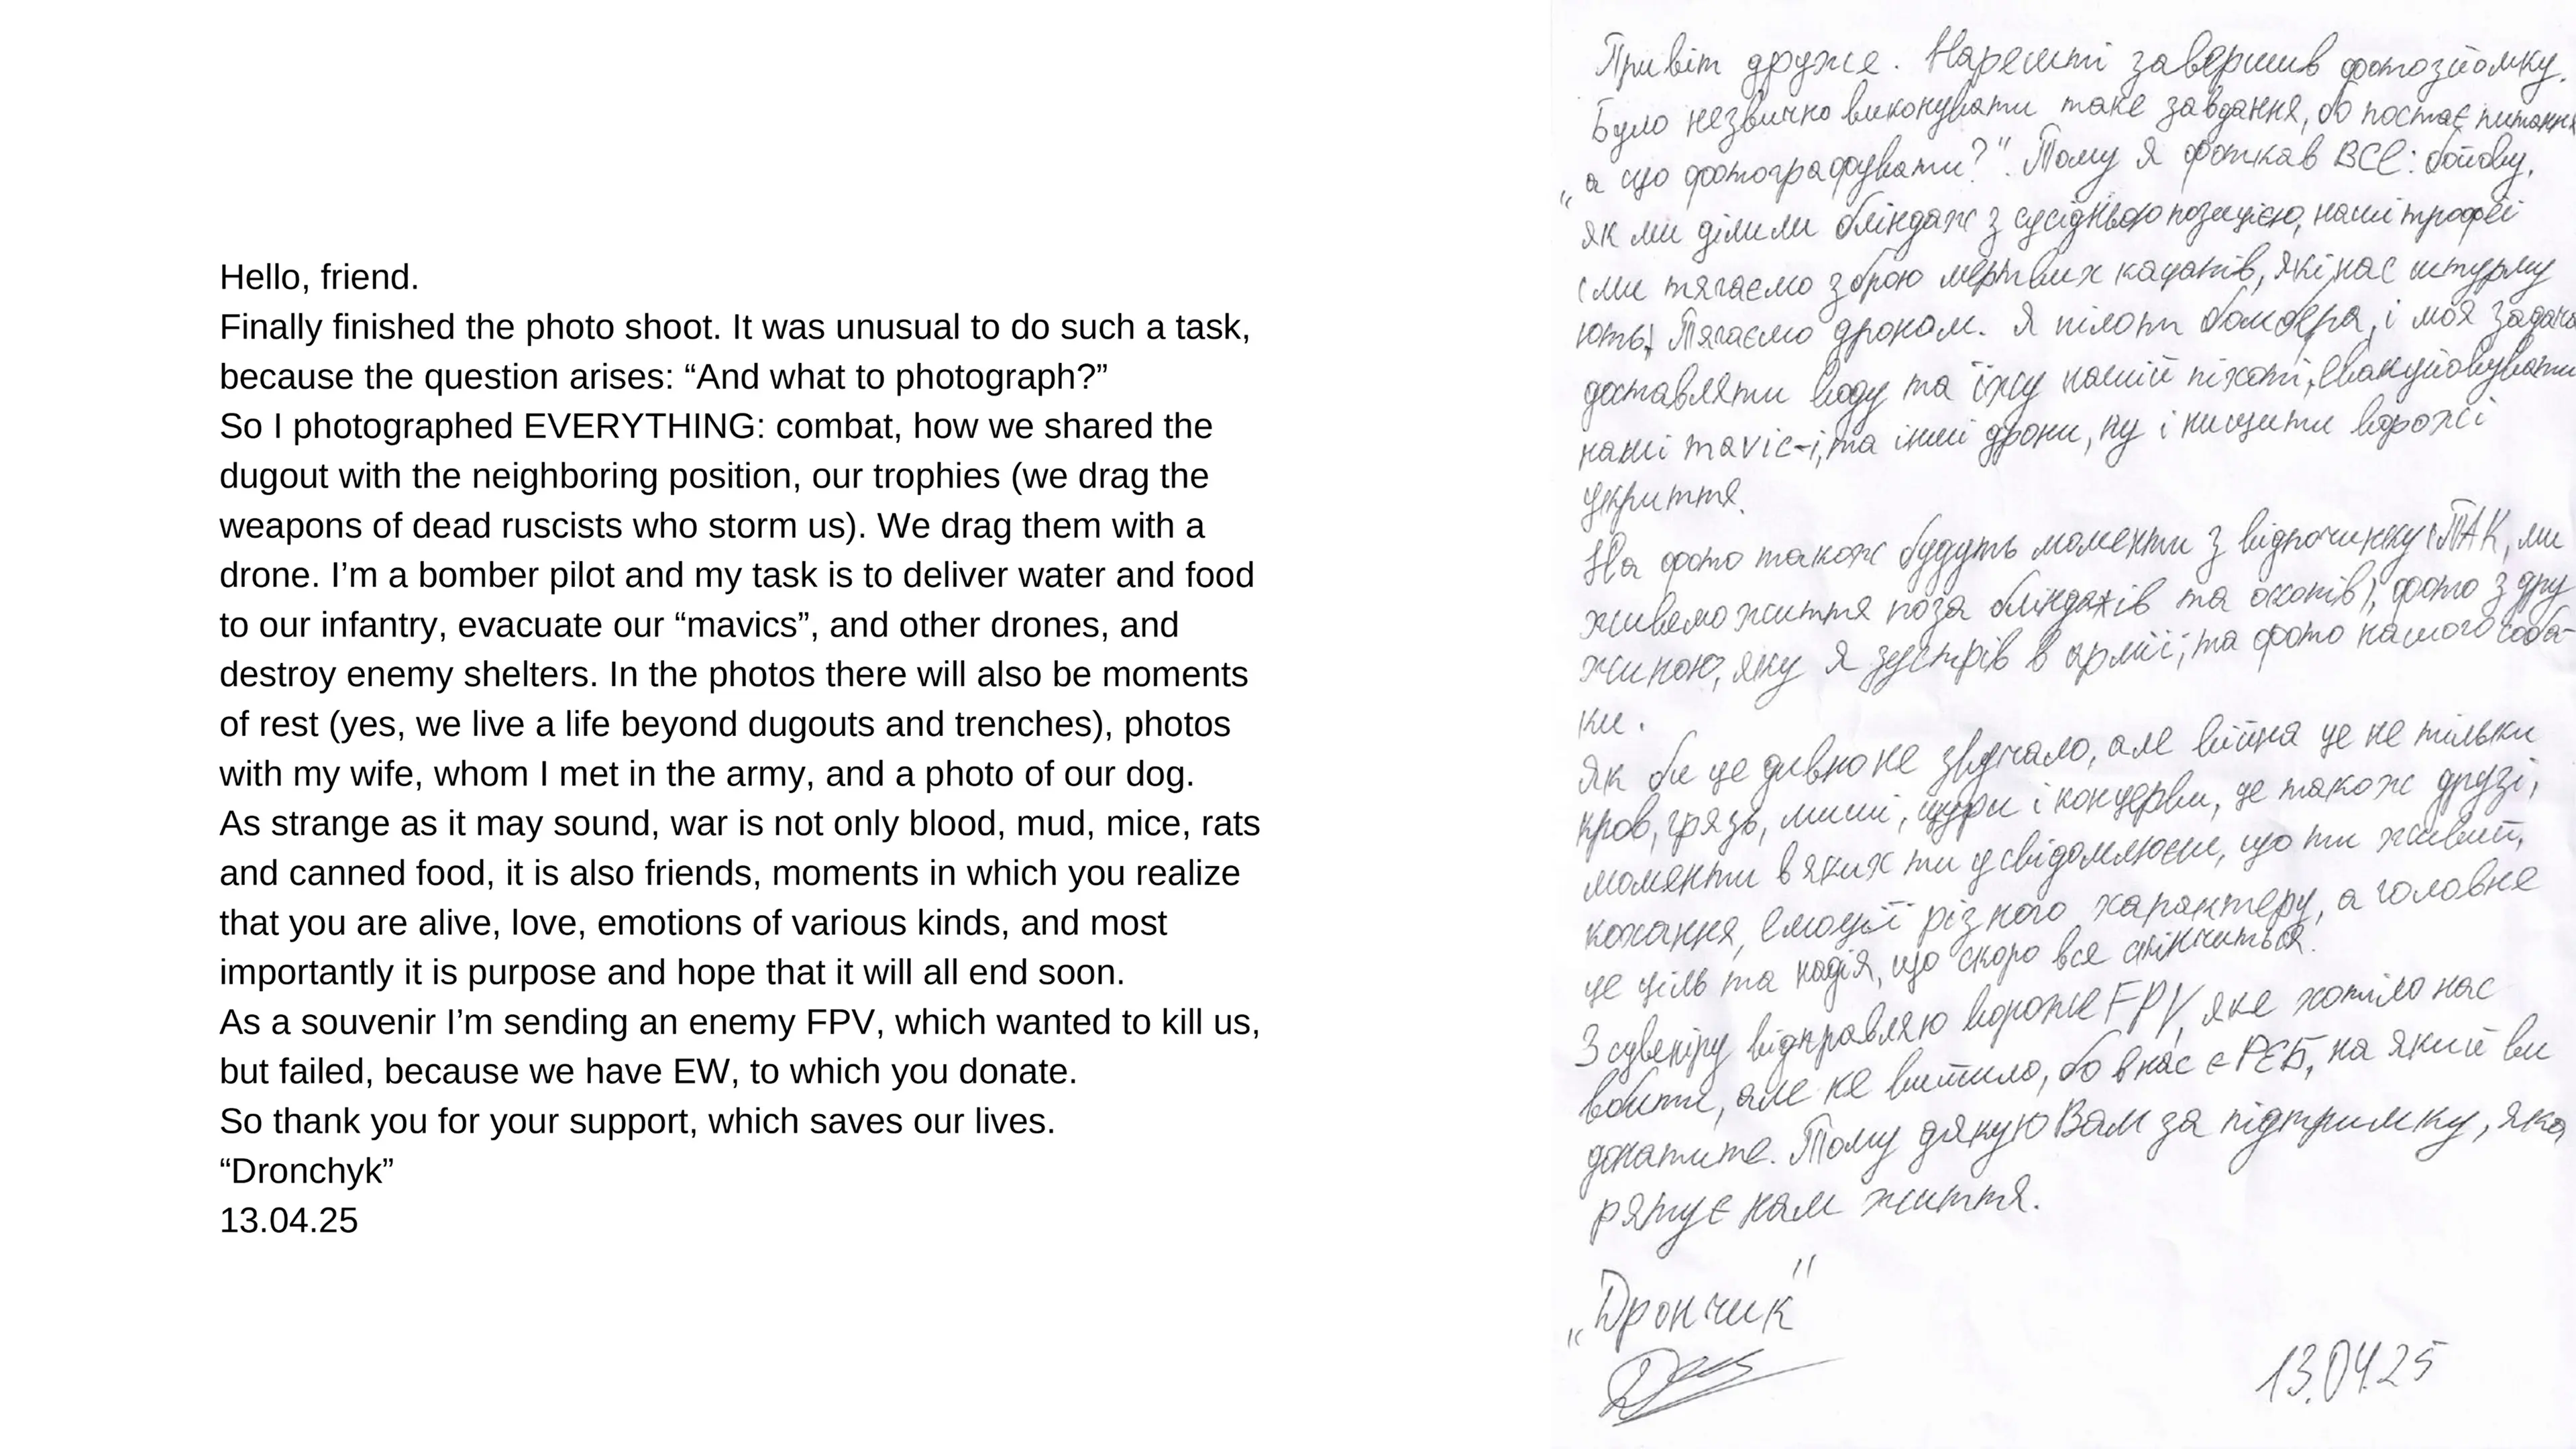 Hello, friend.
Finally finished the photo shoot. It was unusual to do such a task,
because the question arises: “And what to photograph?”
So I photographed EVERYTHING: combat, how we shared the
dugout with the neighboring position, our trophies (we drag the
weapons of dead ruscists who storm us). We drag them with a
drone. I’m a bomber pilot and my task is to deliver water and food
to our infantry, evacuate our “mavics”, and other drones, and
destroy enemy shelters. In the photos there will also be moments
of rest (yes, we live a life beyond dugouts and trenches), photos
with my wife, whom I met in the army, and a photo of our dog.
As strange as it may sound, war is not only blood, mud, mice, rats
and canned food, it is also friends, moments in which you realize
that you are alive, love, emotions of various kinds, and most
importantly it is purpose and hope that it will all end soon.
As a souvenir I’m sending an enemy FPV, which wanted to kill us,
but failed, because we have EW, to which you donate.
So thank you for your support, which saves our lives.
“Dronchyk”
13.04.25
Привіт друже. Нарешті завершив фотозйомку.
Було незвично виконувати таке завдання, бо постає питання
„а що фотографувати?". Тому я фоткав ВСЕ: бойову,
як ми ділили бліндаж з сусідньою позицією, наші трофеї
(ми тягаємо зброю мертвих кацапів, які нас штурму
ють). Тягаємо дроном. Я пілот бомбера, і моя задача
доставляти воду та їжу нашій піхоті, евакуйовувати
наші mavic-і, та інші дрони, ну і нищити ворожі
укриття.
На фото також будуть моменти з відпочинку (ТАК, ми
живемо життя поза бліндажів та окопів), фото з дру
жиною, яку я зустрів в армії, та фото нашого соба-
ки.
Як би це дивно не звучало, але війна це не тільки
кров, грязь, миші, щури і консерви, це також друзі,
моменти в яких ти усвідомлюєш, що ти живий,
кохання, емоції різного характеру, а головне
це ціль та надія, що скоро все скінчиться.
З сувеніру відправляю вороже FPV, яке хотіло нас
вбити, але не вийшло, бо в нас є РЕБ, на який ви
донатите. Тому дякую Вам за підтримку, яка
рятує нам життя.
„Дрончик"
13.04.25